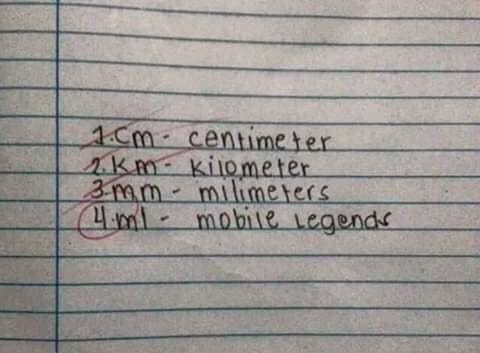 1.cm - centimeter
2.km - kilometer
3.mm - milimeters
4.ml - mobile Legends